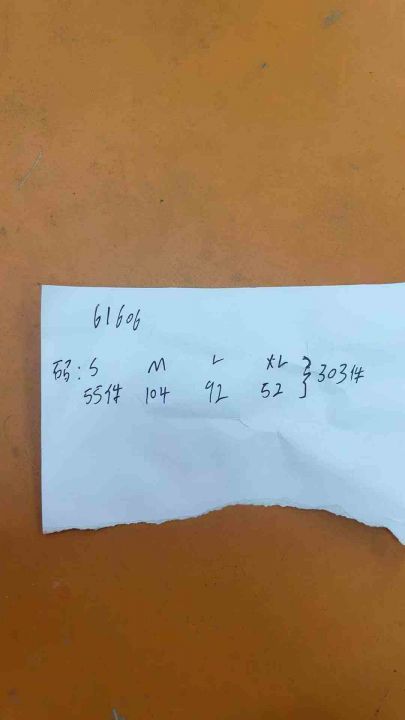 61606
码: S M L XL } 303件
55件 104 92 52